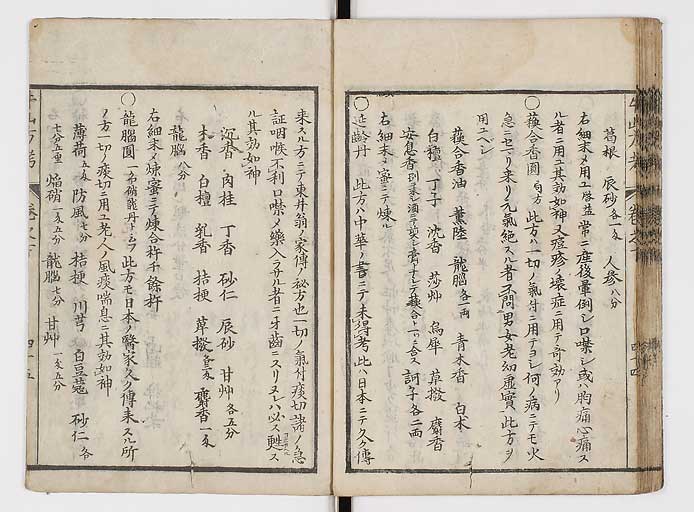 葛根 辰砂各一匁 人參八分
右細末〆用ユ啓益常ニ産後暈倒シ口噤シ或ハ胸痛心痛ス
ル者ニ用ユ其効如神又痘疹ノ壊症ニ用テ奇効アリ
○蘓合香圓 局方 此方ハ一切ノ氣付ニ用テヨシ何ノ病ニテモ火
急ニセマリ来リ元氣絶スル者不問男女老幼虚實此方ヲ
用ユベシ
蘓合香油 薫陸 龍脳各一両 青木香 白朮
白檀 丁子 沈香 莎艸 烏犀 蓽撥 麝香
安息香 訶子各二両
右細末〆蜜ニテ煉ル
○延齢丹 此方ハ中華ノ書ニテ未得考此ハ日本ニテ久ク傳
牛山方考 卷之下 四十四
来スル方ニテ東井翁ノ家傳ノ秘方也一切ノ氣付痰切諸ノ急
証咽喉不利口噤ノ藥入ラザル者ニ牙齒ニスリヌレハ必ス甦ス
ル其効如神
沉香 肉桂 丁香 砂仁 辰砂 甘艸各五分
木香 白檀 乳香 桔梗 蓽撥各一匁 麝香一匁
龍脳八分
右細末〆煉蜜ニテ煉合杵千餘杵
○龍脳圓 一名硝龍丹トユフ此方モ日本ノ醫家久ク傳来スル所
ノ方一切ノ痰切ニ用ユ老人ノ風痰喘息ニ其効如神
薄荷五匁 防風七分 桔梗 川芎 白豆蔲 砂仁各
七分五重 焔硝一匁五分 龍脳七分 甘艸一匁五分
牛山方考 卷之下 四十五